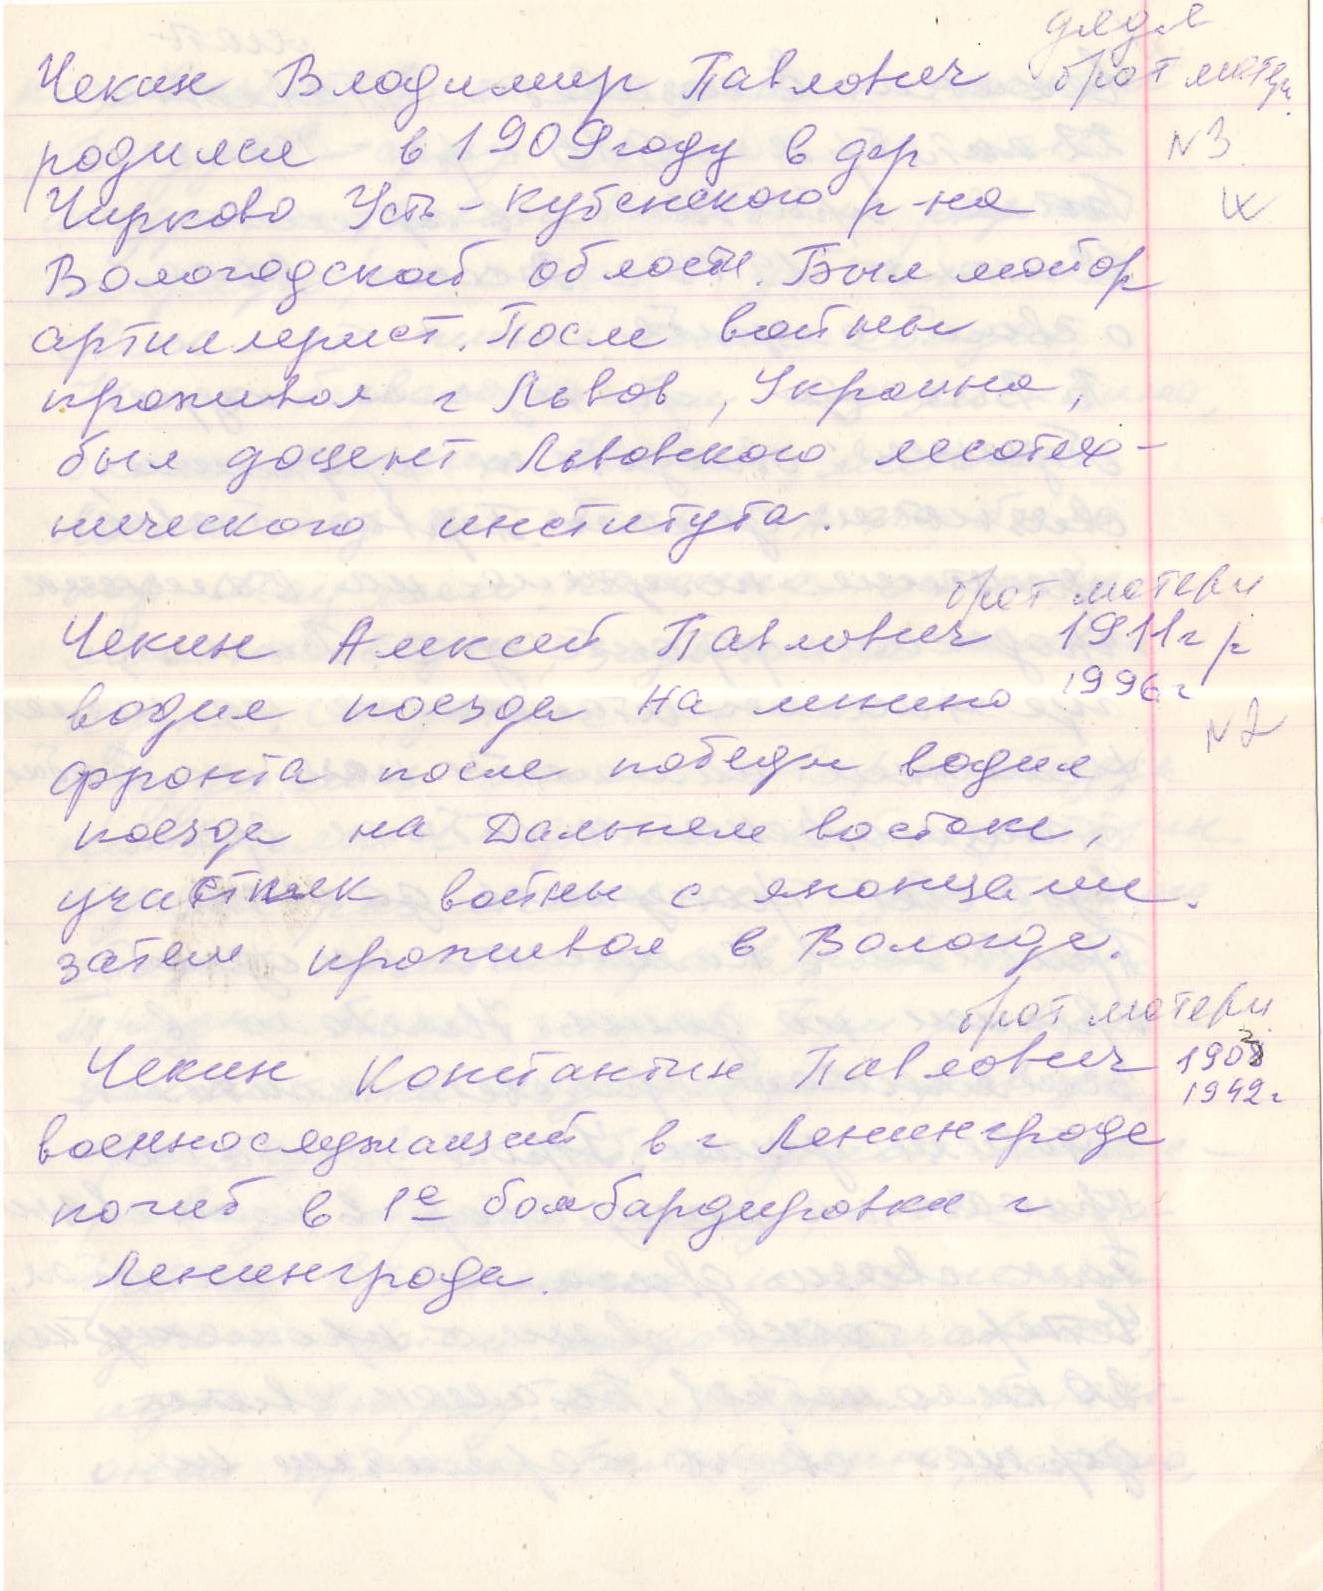 дядя
Чекин Владимир Павлович брат матери
родился в 1909 году в дер N3
Чирково Усть-Кубенского р-на
Вологодской области. Был майор
артиллерист. После войны
проживал г Львов, Украина,
был доцент Львовского лесотех-
нического института.
брат матери
Чекин Алексей Павлович 1911 г р
водил поезда на линию 1996 г
N2
фронта после победы водил
поезда на Дальнем востоке,
участник войны с японцами.
затем проживал в Вологде.
брат матери
Чекин Константин Павлович
1942 г
военнослужащий в г Ленинграде
погиб в 1е бомбардировки г
Ленинграда.